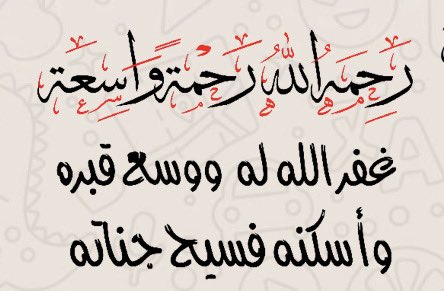 رَحِمَهُ اللهُ رَحْمَةً وَاسِعَة
غفر الله له ووسع قبره
وأسكنه فسيح جناته